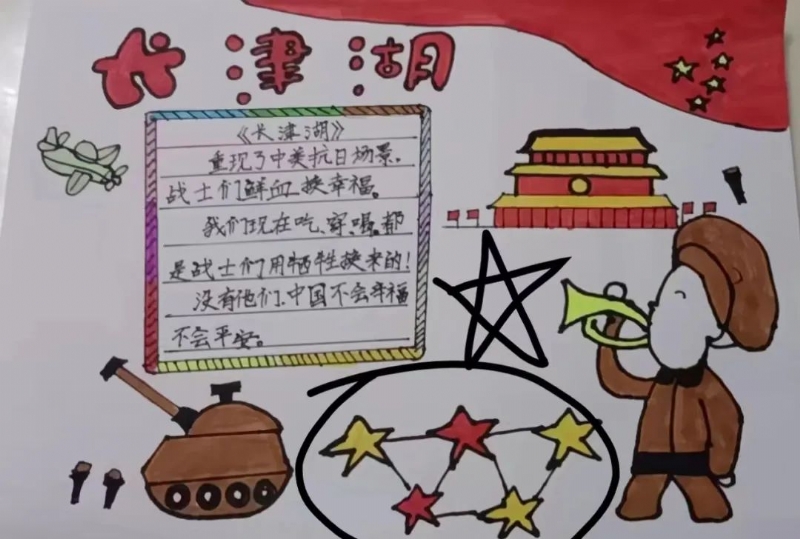 长津湖
《长津湖》
重现了中美抗日场景。
战士们鲜血换幸福。
我们现在吃、穿、喝。都
是战士们用牺牲换来的！
没有他们、中国不会幸福
不会平安。